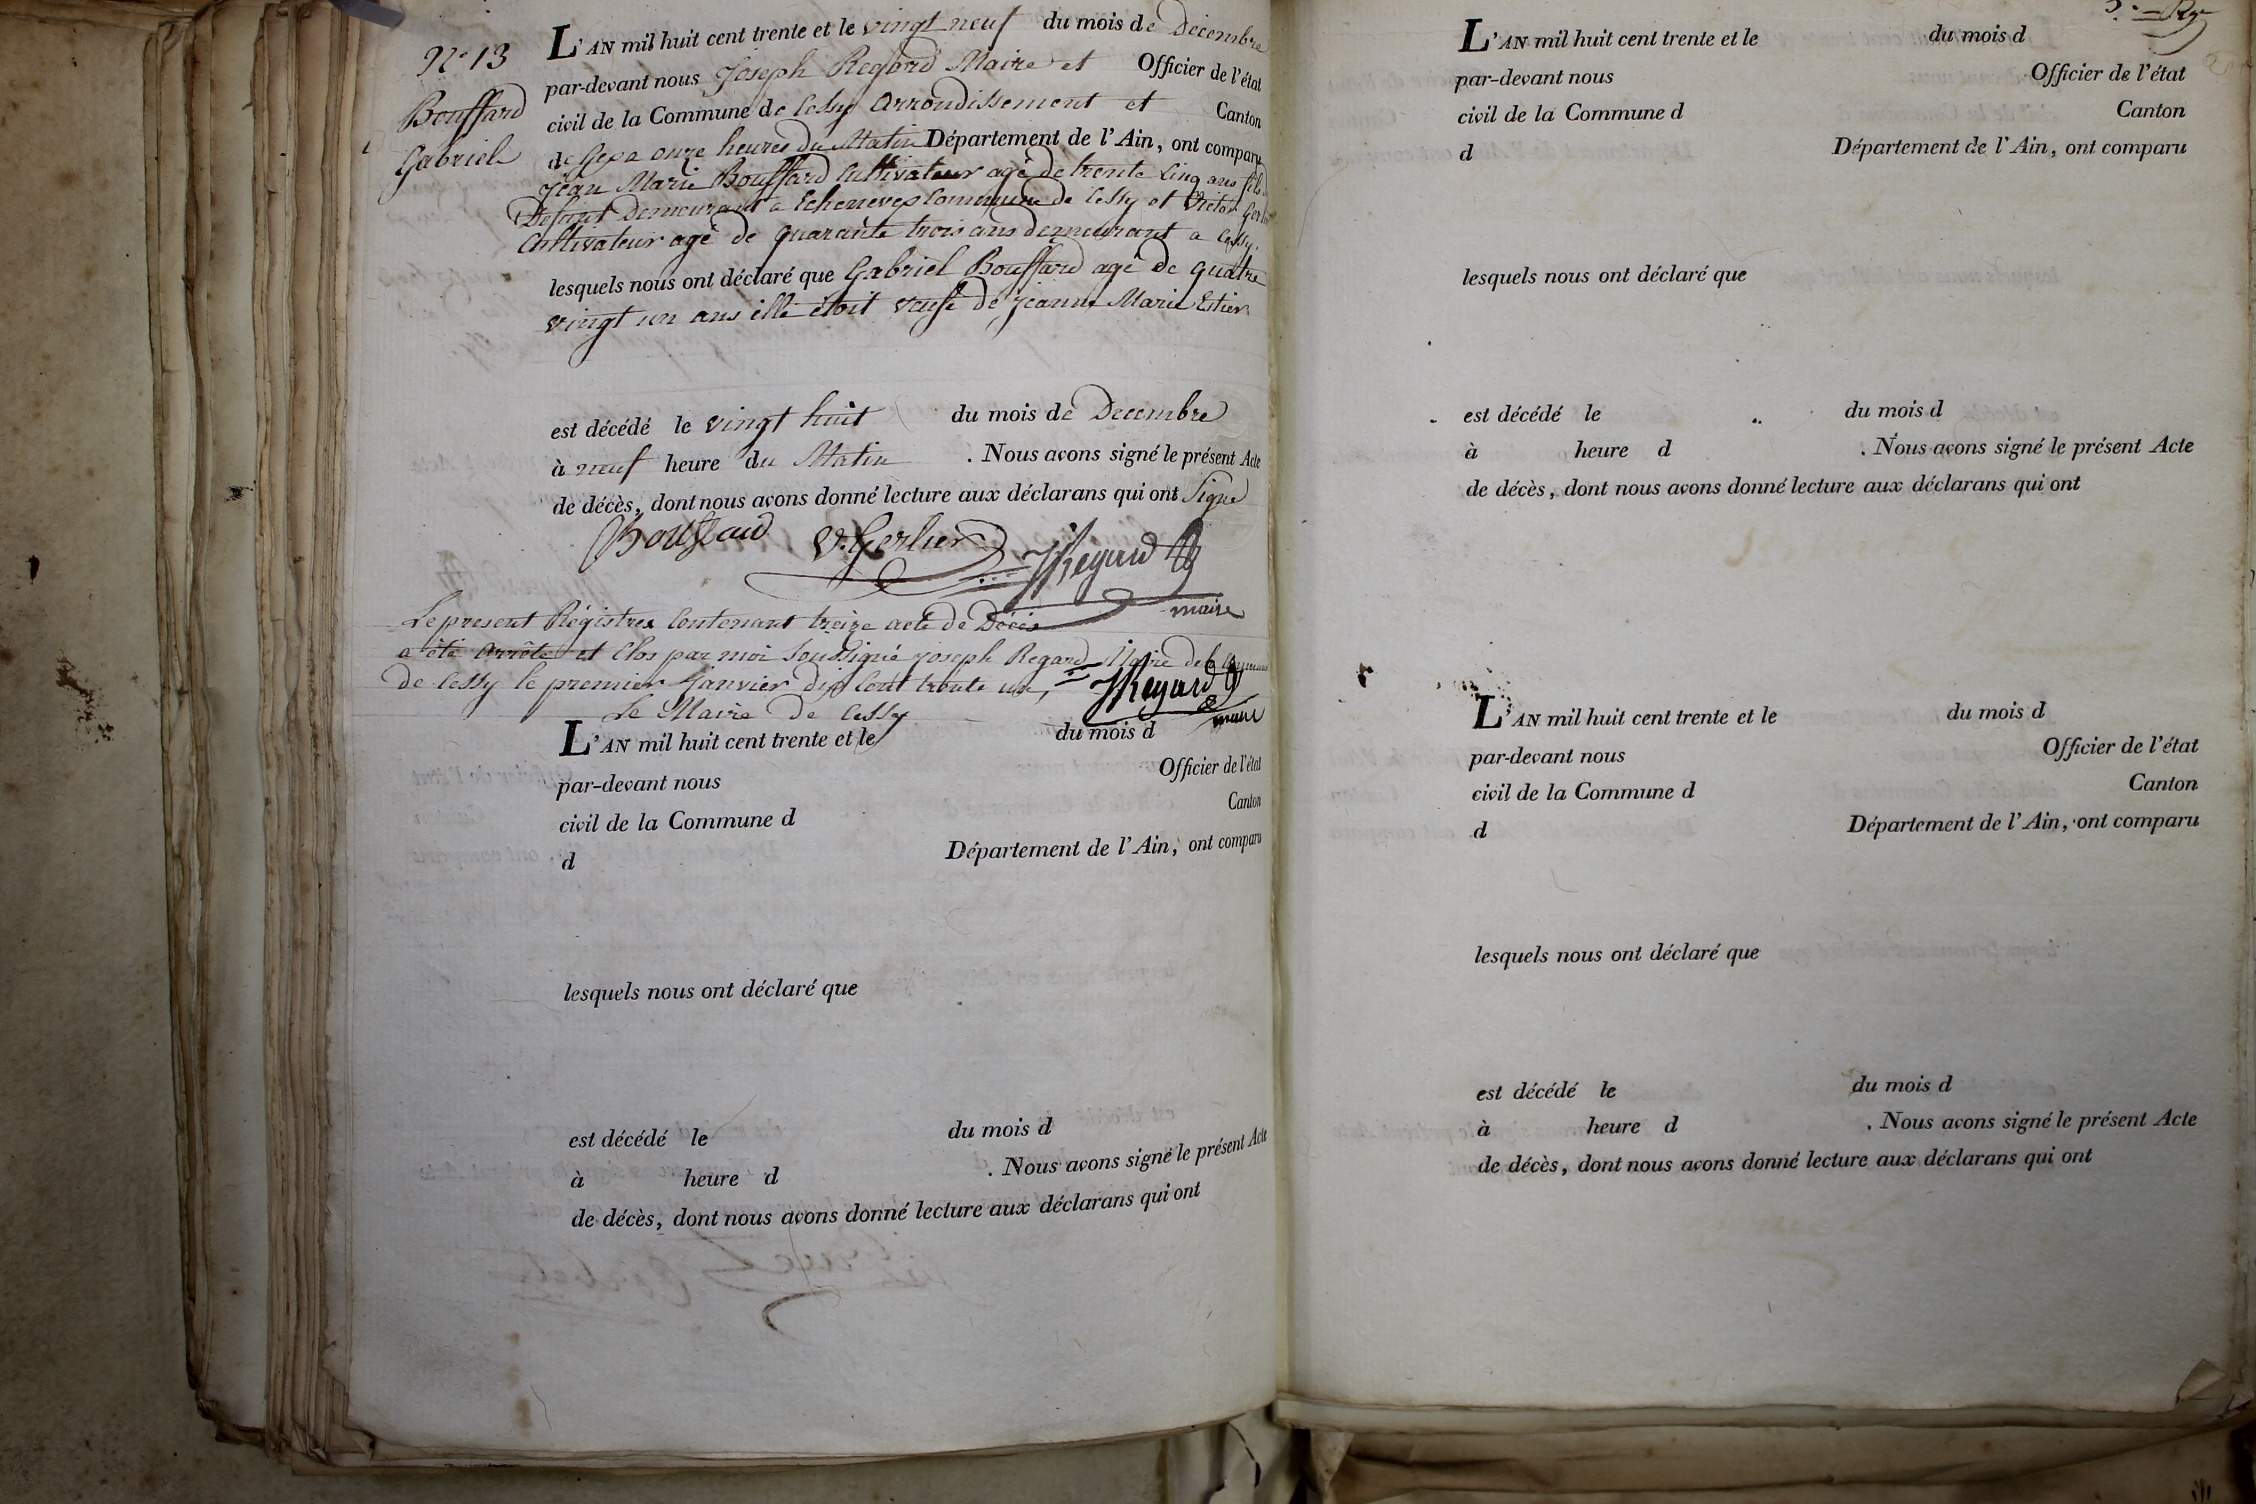 N° 13
Bouffard
Gabriel
L'AN mil huit cent trente et le vingt neuf du mois de Decembre
par-devant nous Joseph Regard Maire et Officier de l'état
civil de la Commune de Cessy arrondissement et Canton
de Gex a onze heures du Matin Département de l'Ain, ont comparu
Jean Marie Bouffard Cultivateur agé de trente Cinq ans fils
Defunt Demeurant a Echenevex Commune de Cessy et Victor Gerlier
Cultivateur agé de quarante trois ans demeurant a Cessy.
lesquels nous ont déclaré que Gabriel Bouffard agé de quatre
vingt un ans elle étoit veufe de jeanne Marie Estier
est décédé le vingt huit du mois de Decembre
à neuf heure du Matin . Nous avons signé le présent Acte
de décès, dont nous avons donné lecture aux déclarans qui ont Signé
Bouffard V. Gerlier JRegard
maire
Le present Régistres Contenant treize acte de Décès
a été arrête et Clos par moi Soussigné joseph Regard Maire de la Commune
de Cessy le premier Janvier dix Cent trente un, JRegard
Le Maire de Cessy maire
L'AN mil huit cent trente et le du mois d
par-devant nous Officier de l'état
civil de la Commune d Canton
d Département de l'Ain, ont comparu
lesquels nous ont déclaré que
est décédé le du mois d
à heure d . Nous avons signé le présent Acte
de décès, dont nous avons donné lecture aux déclarans qui ont
L'AN mil huit cent trente et le du mois d
par-devant nous Officier de l'état
civil de la Commune d Canton
d Département de l'Ain, ont comparu
lesquels nous ont déclaré que
est décédé le du mois d
à heure d . Nous avons signé le présent Acte
de décès, dont nous avons donné lecture aux déclarans qui ont
L'AN mil huit cent trente et le du mois d
par-devant nous Officier de l'état
civil de la Commune d Canton
d Département de l'Ain, ont comparu
lesquels nous ont déclaré que
est décédé le du mois d
à heure d . Nous avons signé le présent Acte
de décès, dont nous avons donné lecture aux déclarans qui ont